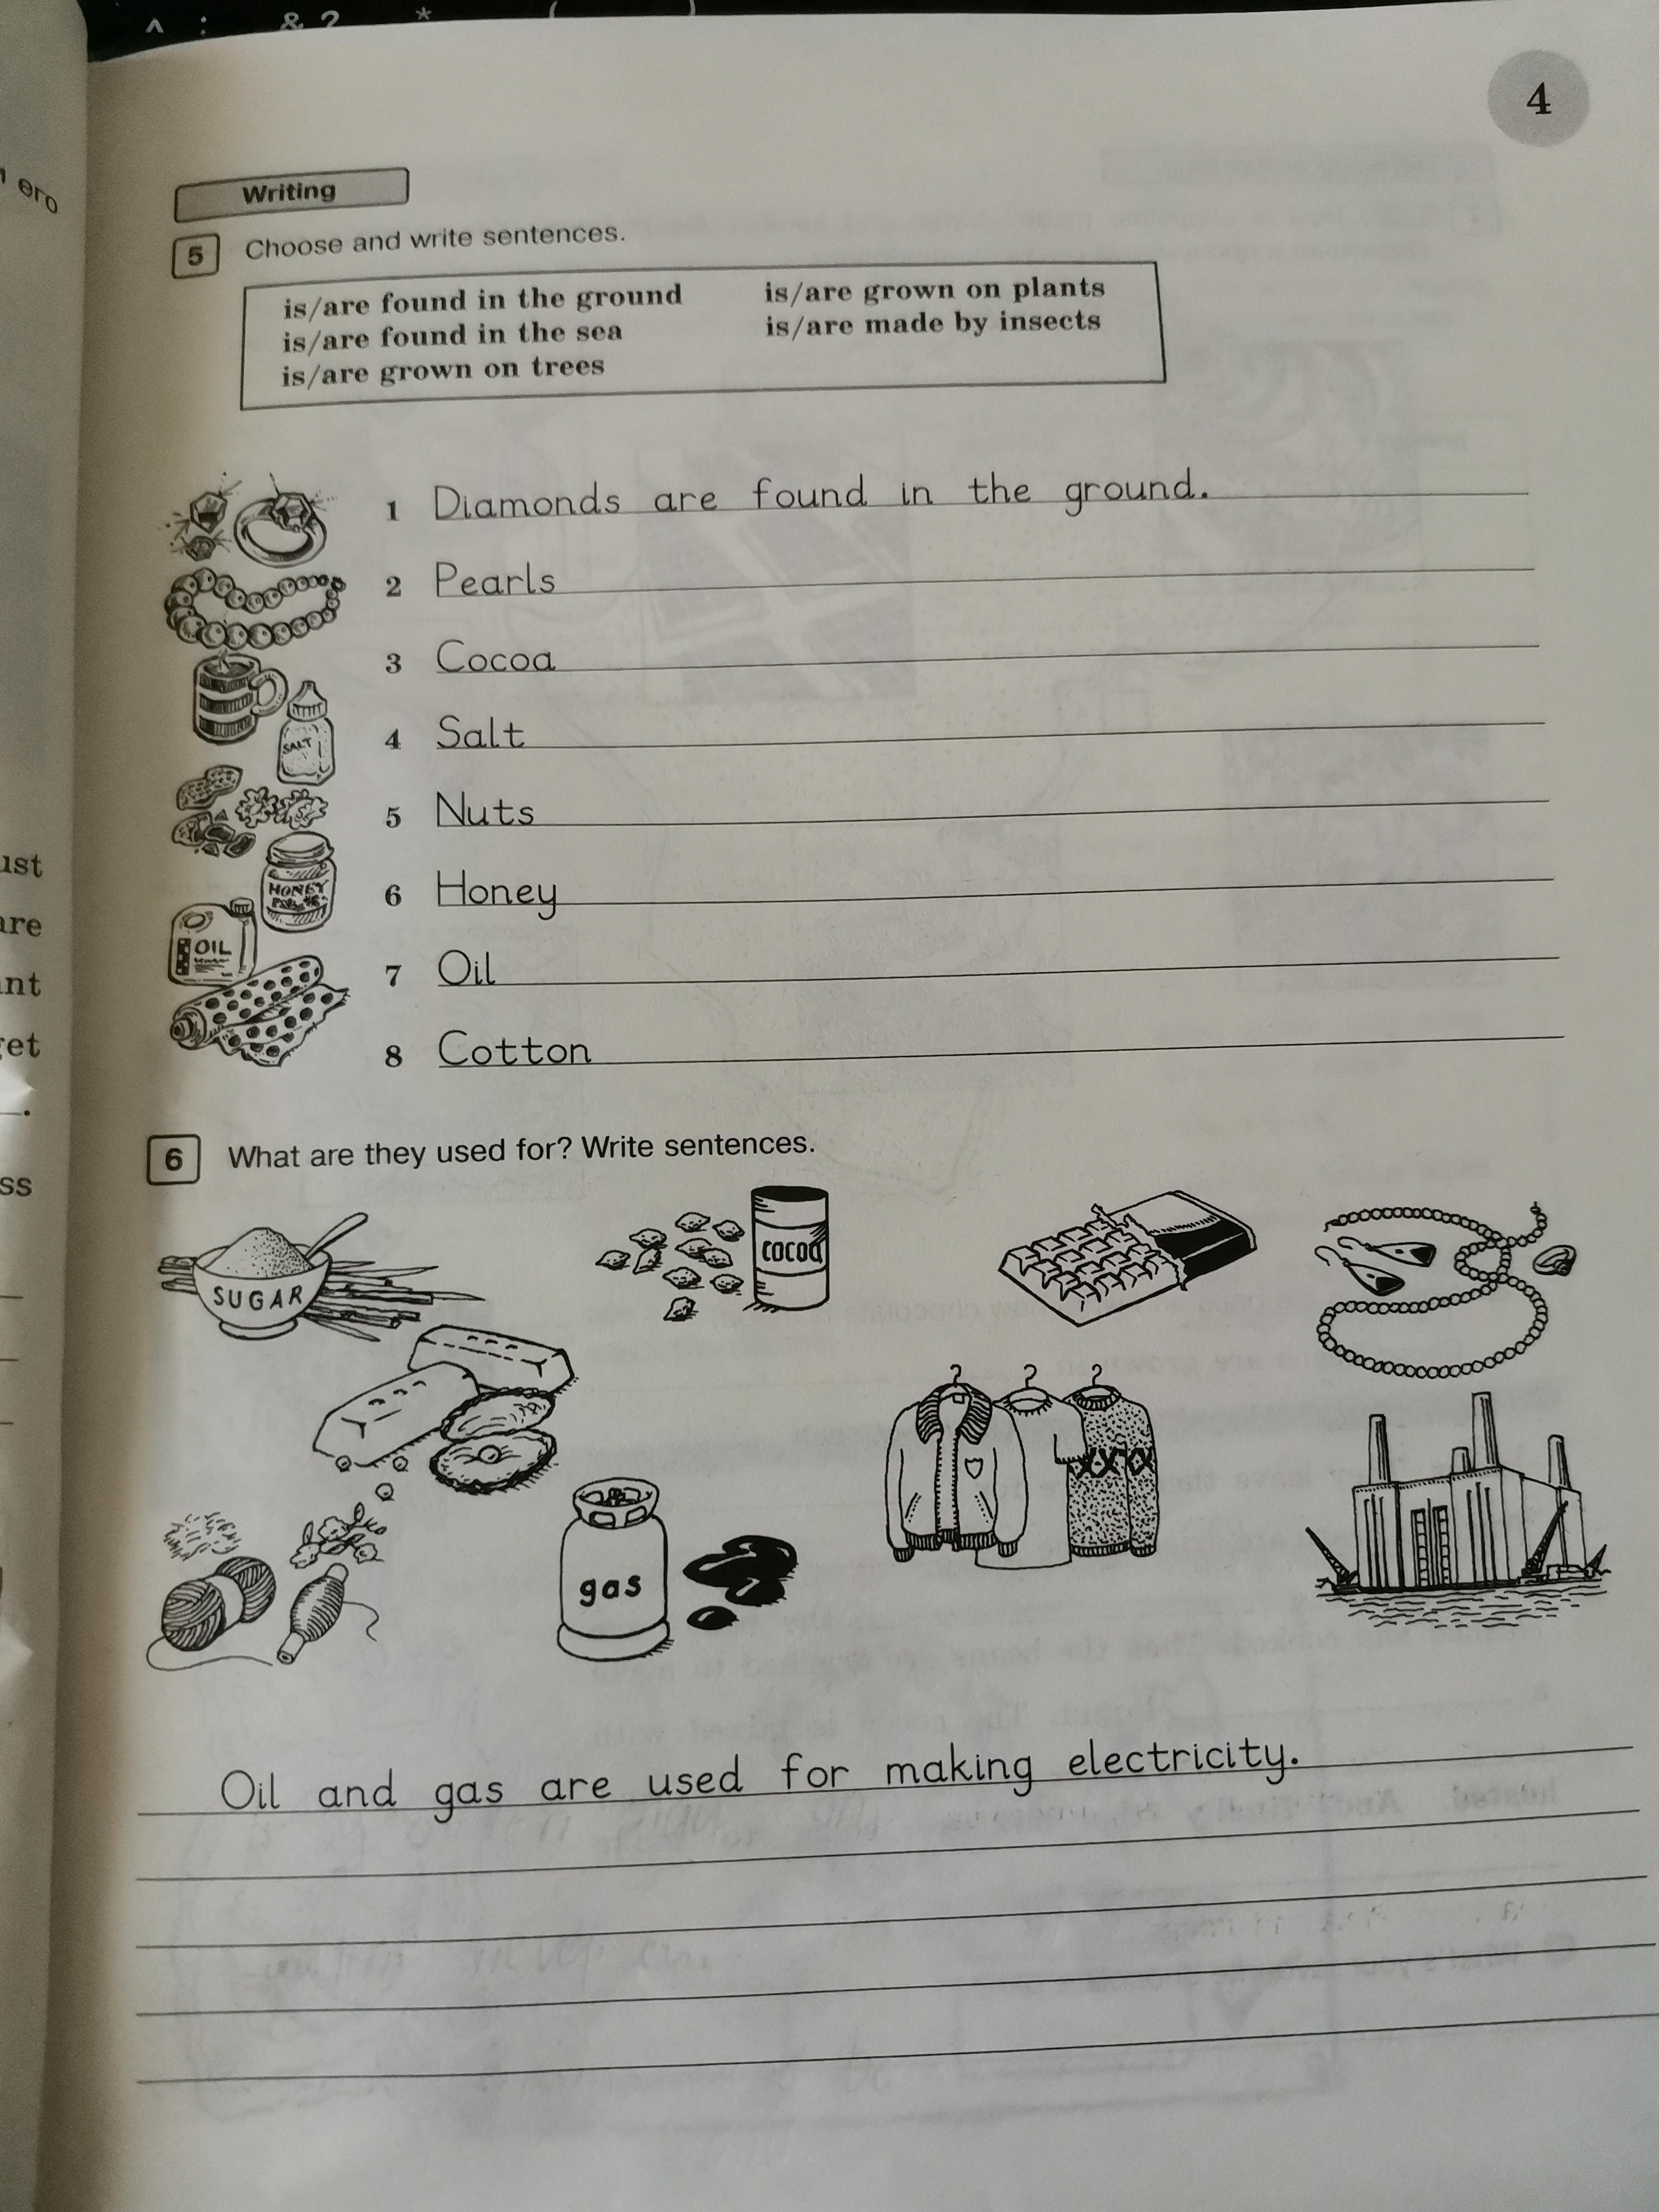 ^ : & 2 * ( )
4
ero
Writing
5 Choose and write sentences.
is/are found in the ground
is/are found in the sea
is/are grown on trees
is/are grown on plants
is/are made by insects
1 Diamonds are found in the ground.
2 Pearls
3 Cocoa
SALT
4 Salt
5 Nuts
HONEY
6 Honey
OIL
7 Oil
8 Cotton
ust
are
ant
get
ss
6 What are they used for? Write sentences.
SUGAR
cocoa
gas
Oil and gas are used for making electricity.